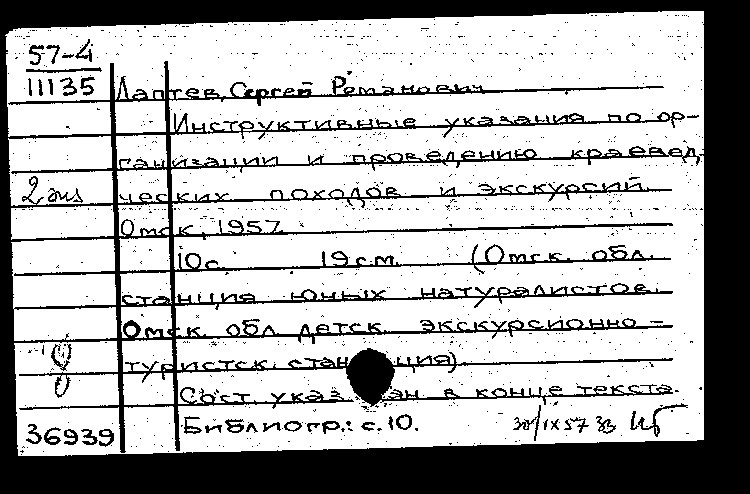 57-4
11135
Лаптев, Сергей Романович
Инструктивные указания по ор-
ганизации и проведению краевед-
2 экз ческих походов и экскурсий.
Омск, 1957.
10с. 19см. (Омск. обл.
станция юных натуралистов.
Омск. обл детск. экскурсионно-
туристск. станция).
Сост. указан в конце текста.
36939 Библиогр.: с. 10.
30/IX 57